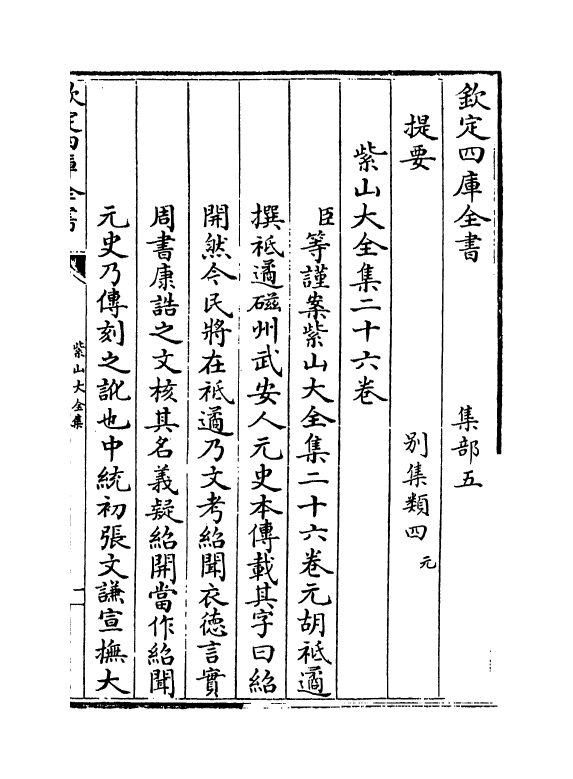 欽定四庫全書　集部五
提要　別集類四元
紫山大全集二十六卷
臣等謹案紫山大全集二十六卷元胡祗遹
撰祗遹磁州武安人元史本傳載其字曰紹
開然今民將在祗遹乃文考紹聞衣德言實
周書康誥之文核其名義疑紹開當作紹聞
元史乃傳刻之訛也中統初張文謙宣撫大
欽定四庫全書
紫山大全集